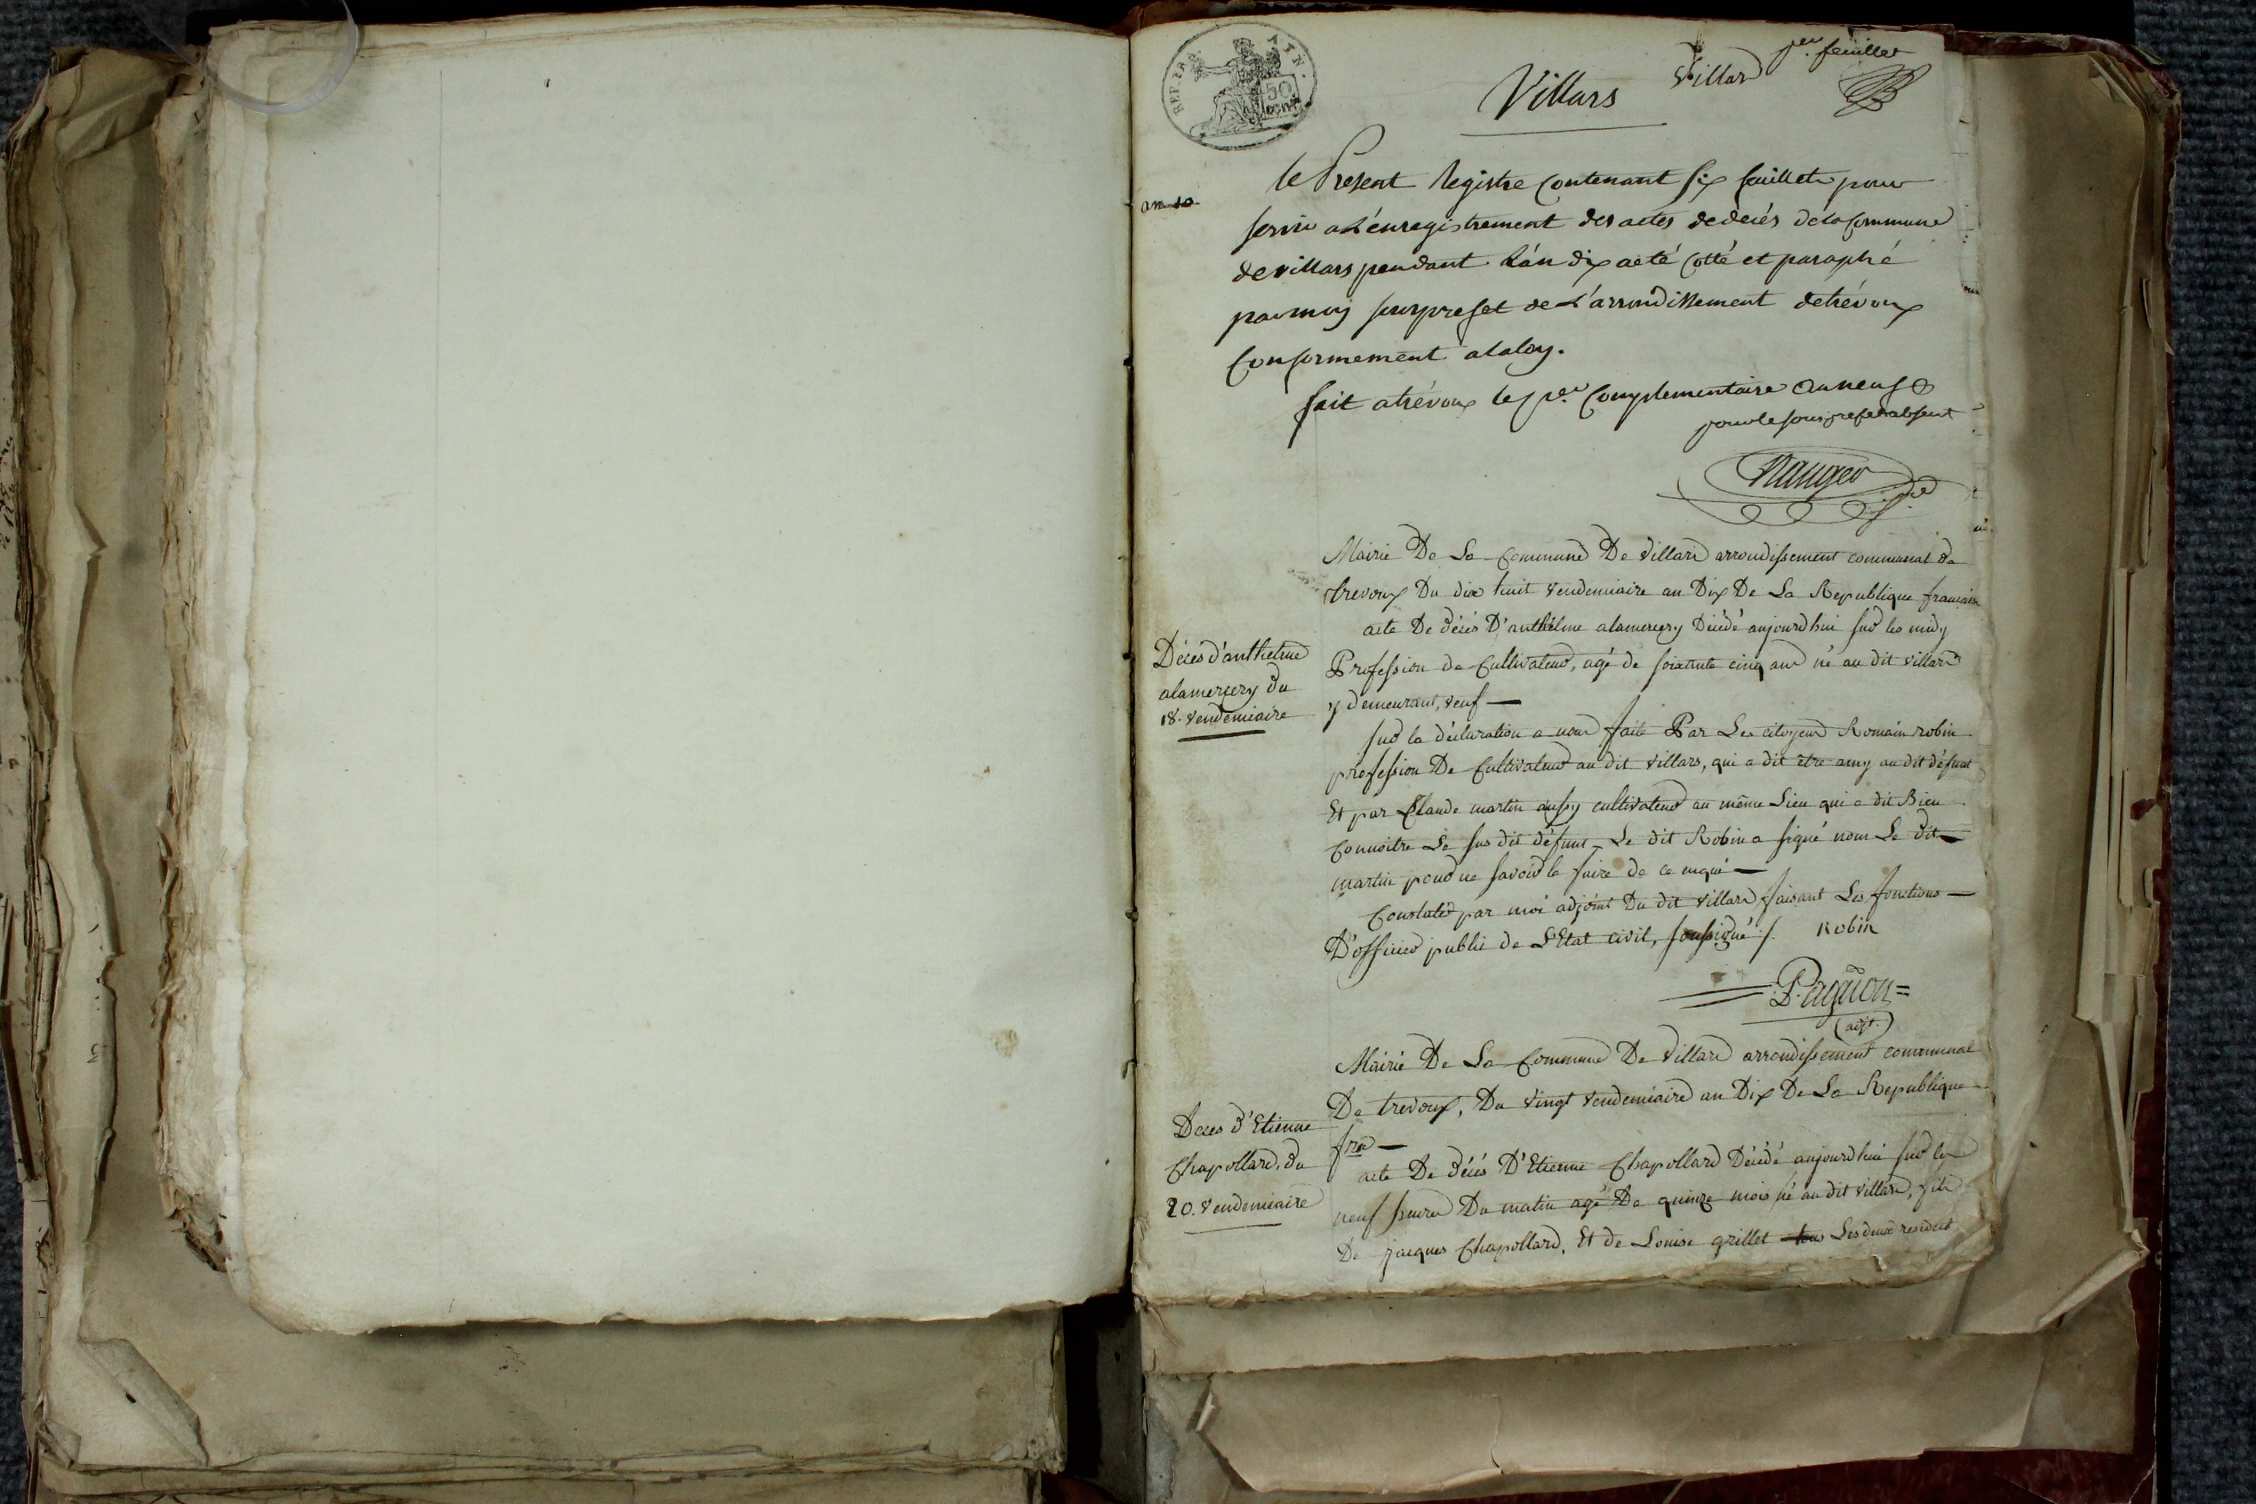 1er. feuillet
Villars
Villars
REP. FRA. 
50
CENT
an 10
le Present Registre Contenant six feuillets pour
servir a L'énregistrement des actes de decés de la Commune
de villars pendant L'an dix a eté Cotté et paraphé
par moy souspreset de L'arrondissement de trévoux
Conformement a la loy.
fait a trévoux le 1er. Complementaire an neuf
pour le sous prefet absent
Mairie De La Commune De Villars arrondissement communal de
trevoux Du dix huit Vendemiaire an Dix De La Republique francaise
acte De décés D'anthelme alamercery Décédé aujourd'hui sur les midy
Décès d'anthelme
alamercery du
18. Vendemiaire
Profession de Cultivateur, agé de soixante cinq ans né au dit villars
y demeurant, veuf —
sur la déclaration a nous faite Par Les citoyens Romain robin
profession De Cultivateur au dit Villars, qui a dit être amy au dit défunt
Et par Claude martin aussy cultivateur au même Lieu qui a dit Bien
Connoitre Le sus dit défunt — Le dit Robin a signé non Le dit —
martin pour ne savoir le faire de ce enquis —
Constaté par moi adjoint Du dit Villars faisant Les fonctions —
D'officier public de L'Etat civil, soussigné /. Robin
P. agnion =
(adjt.)
Mairie De La Commune De Villars arrondissement communal
De trevoux, Du Vingt Vendemiaire an Dix De La Republique
frse —
Deces d'Etienne
Chapollard, du
20. Vendemiaire
acte De Décés D'Etienne Chapollard Décédé aujourd'hui sur les
neuf heures Du matin agé De quinze mois né au dit villars, fils
De jacques Chapollard, Et de Louise grillet tous Les deux resident